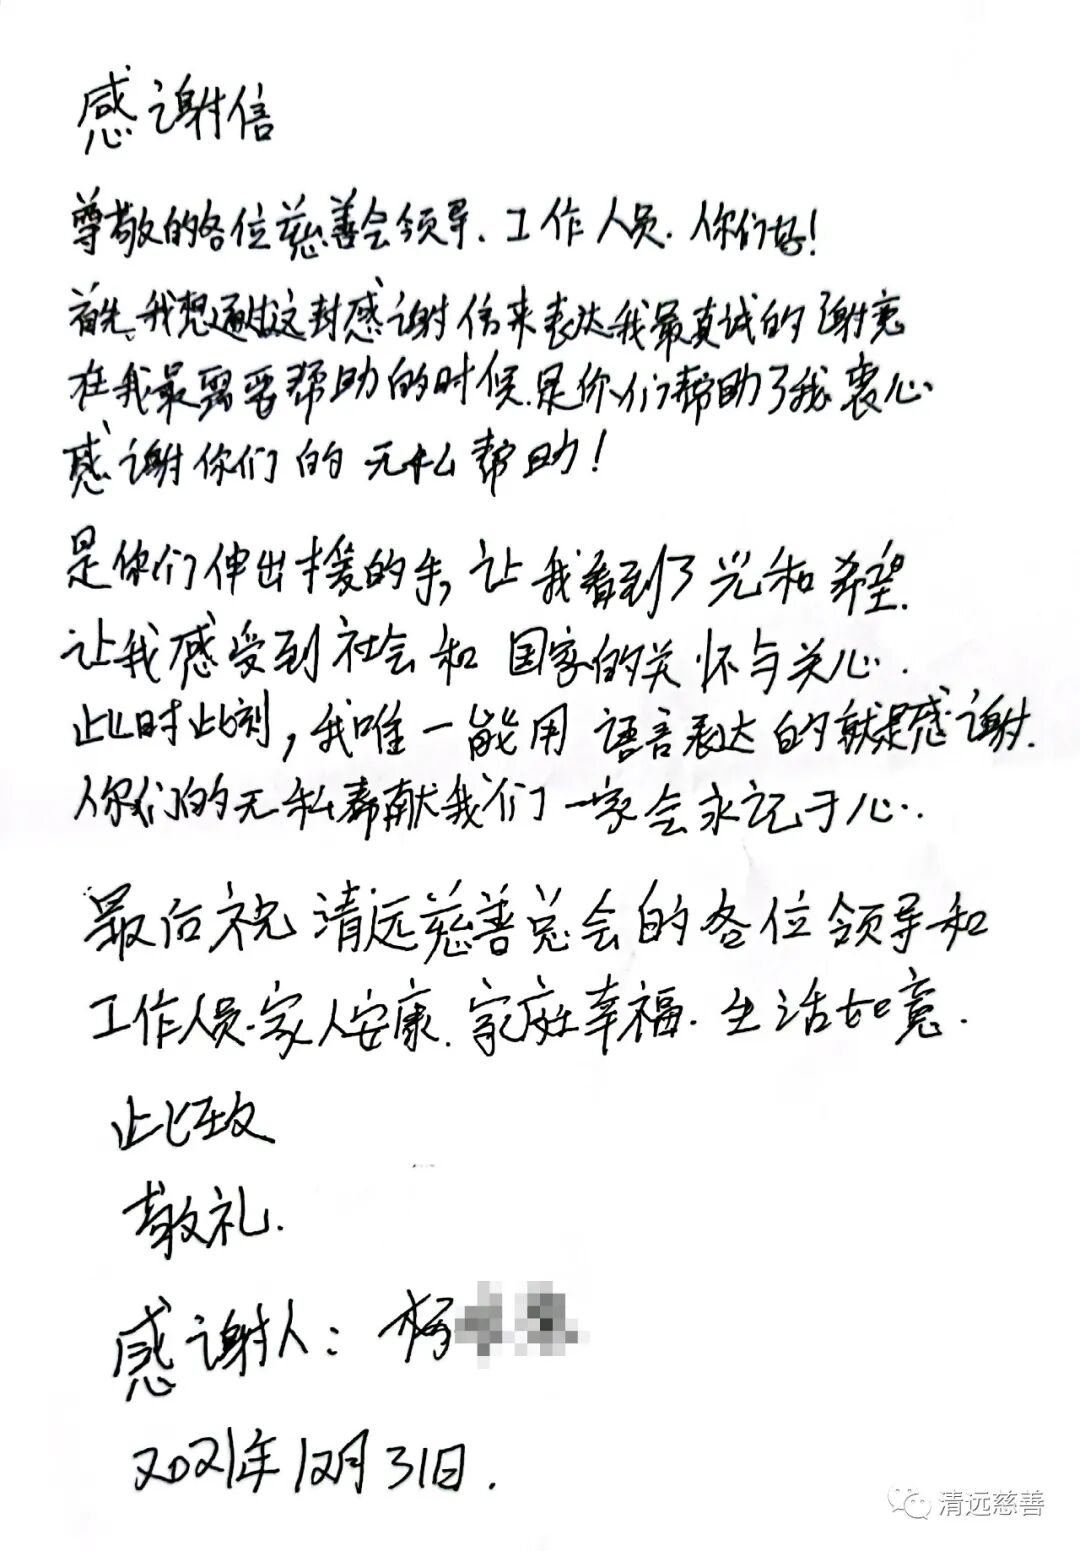 感谢信
尊敬的各位慈善会领导、工作人员.你们好!
首先、我想通过这封感谢信来表达我最真诚的谢意
在我最需要帮助的时候.是你们帮助了我衷心
感谢你们的无私帮助!
是你们伸出援的手,让我看到了光和希望.
让我感受到社会和国家的关怀与关心.
此时此刻,我唯一能用语言表达的就是感谢.
你们的无私奉献我们一家会永记于心.
最后祝清远慈善总会的各位领导和
工作人员.家人安康.家庭幸福.生活如意.
此致
敬礼.
感谢人:杨
2021年12月31日.
清远慈善